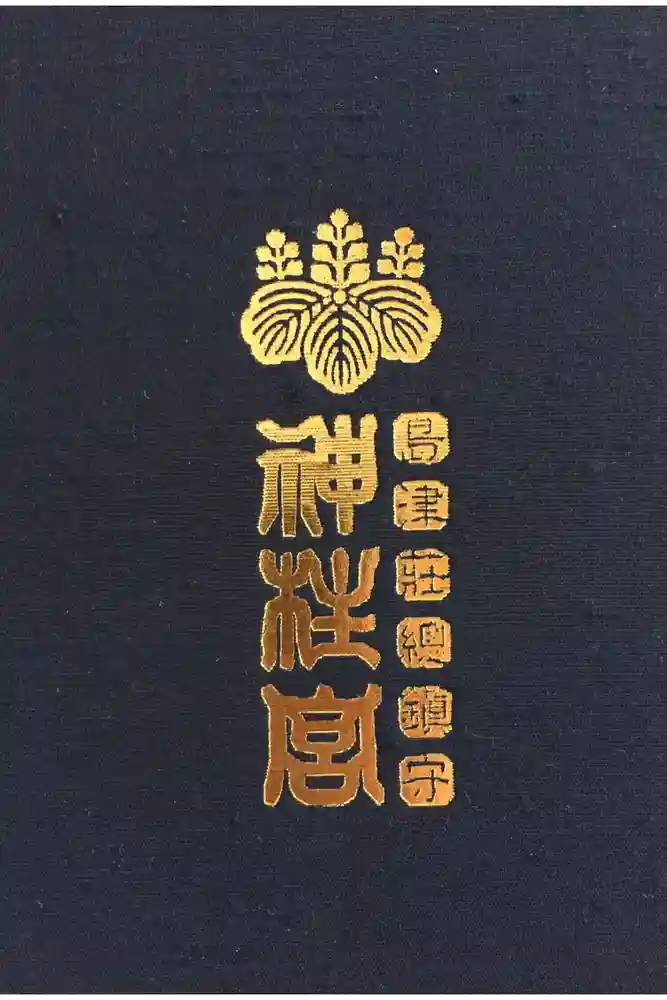 島津荘總鎮守
神柱宮